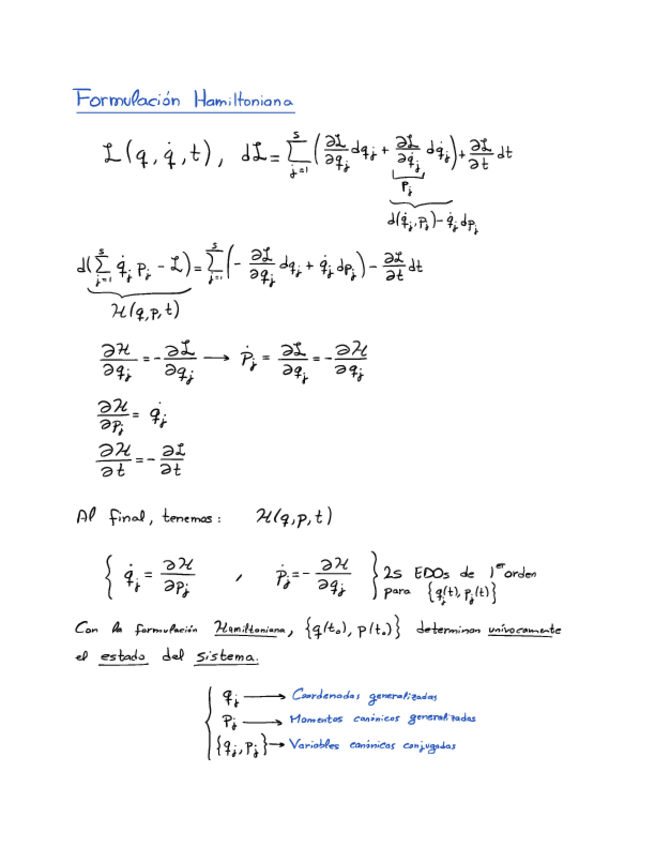 Formulación Hamiltoniana
ℒ(q, q̇, t), dℒ = ∑_{j=1}^{s} (∂ℒ/∂q_j dq_j + ∂ℒ/∂q̇_j dq̇_j) + ∂ℒ/∂t dt
p_j
d(q̇_j, p_j) - q̇_j dp_j
d(∑_{j=1}^{s} q̇_j p_j - ℒ) = ∑_{j=1}^{s} (- ∂ℒ/∂q_j dq_j + q̇_j dp_j) - ∂ℒ/∂t dt
ℋ(q, p, t)
∂ℋ/∂q_j = - ∂ℒ/∂q_j → ṗ_j = ∂ℒ/∂q_j = - ∂ℋ/∂q_j
∂ℋ/∂p_j = q̇_j
∂ℋ/∂t = - ∂ℒ/∂t
Al final, tenemos: ℋ(q, p, t)
{ q̇_j = ∂ℋ/∂p_j , ṗ_j = - ∂ℋ/∂q_j } 2s EDOs de 1er orden
para {q_j(t), p_j(t)}
Con la formulación Hamiltoniana, {q(t₀), p(t₀)} determinan unívocamente
el estado del sistema.
{ q_j → Coordenadas generalizadas
p_j → Momentos canónicos generalizados
{q_j, p_j} → Variables canónicas conjugadas